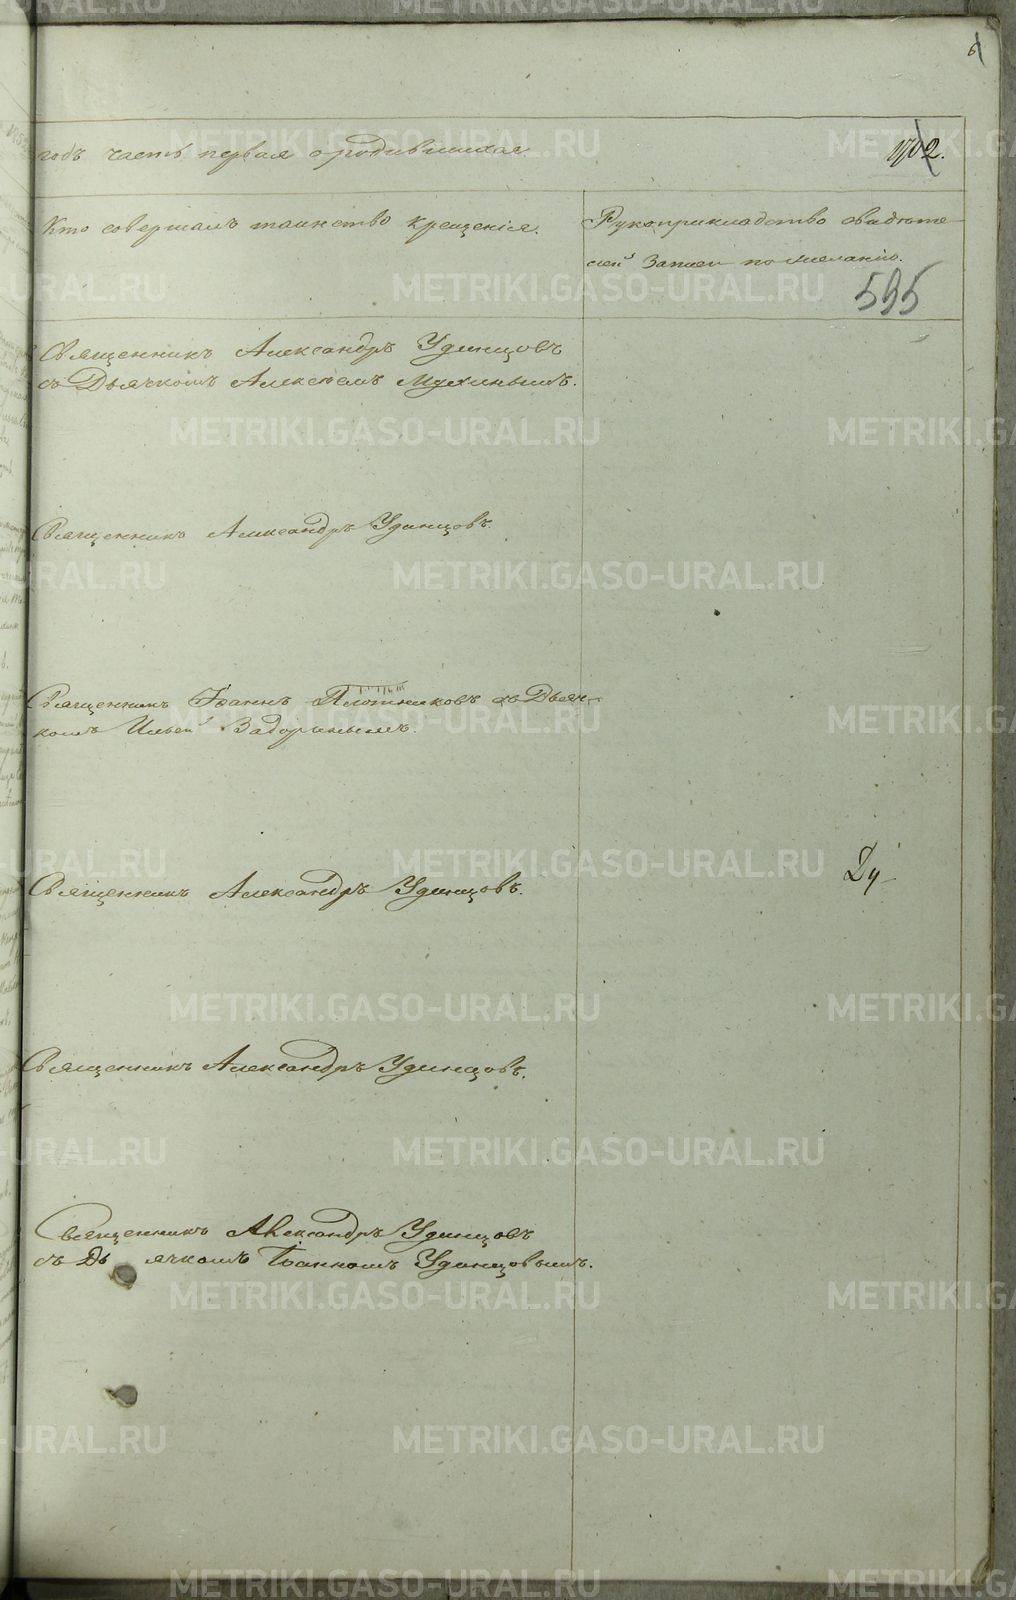 6
годъ часть первая о родившихся.
1702.
Кто совершалъ таинство крещенія.
Рукоприкладство свидѣте-
лей записи по желанію.
595
Священникъ Александръ Удинцовъ
съ Дьячкомъ Алексѣемъ Мухинымъ.
Священникъ Александръ Удинцовъ.
Священникъ Іоаннъ Плотниковъ съ Дьяч-
комъ Ильей Задоринымъ.
Священникъ Александръ Удинцовъ.
Священникъ Александръ Удинцовъ.
Священникъ Александръ Удинцовъ
съ Дьячкомъ Іоанномъ Удинцовымъ.
METRIKI.GASO-URAL.RU